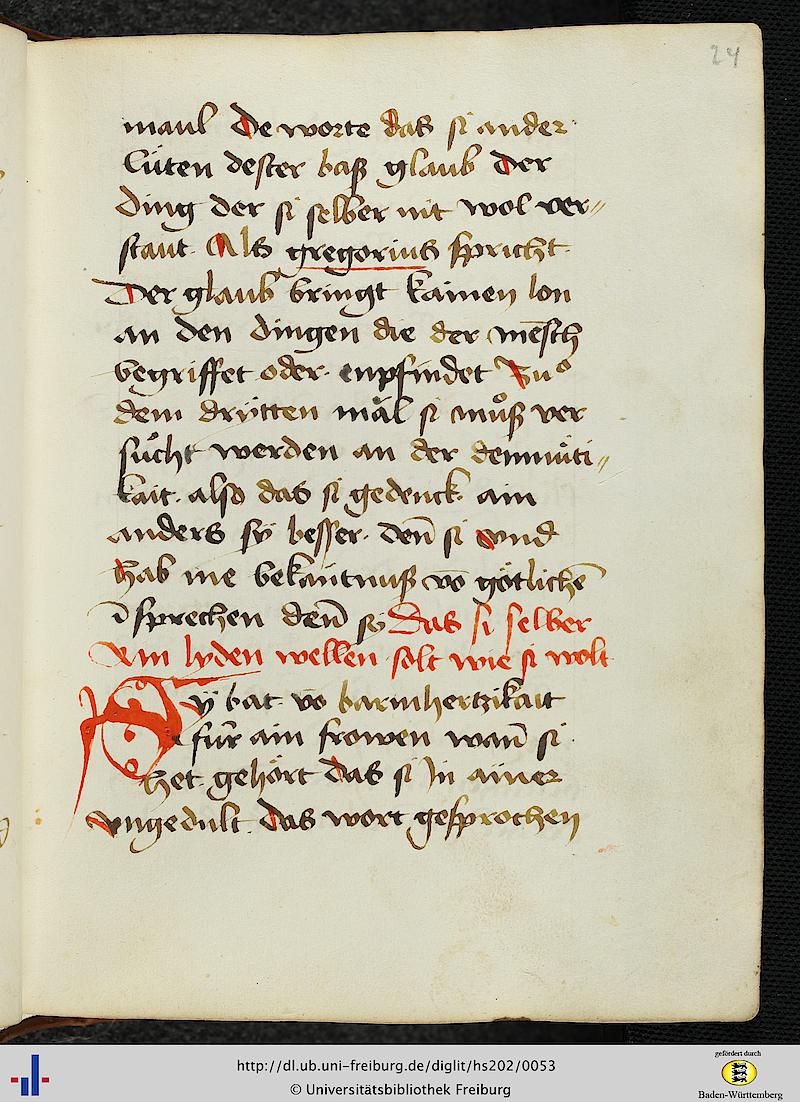 24
maul De worte das si ander
lúten dester baß glaub Der
ding der si selber nit wol ver〃
staut. Als gregorius spricht.
Der glaub bringt kainen lon
an den dingen die der mēsch
begriffet oder enpfindet Zuͦ
dem drýtten mal si muͦß ver
suͦcht werden an der demuͤti〃
kait. also das si gedenck ain
anders sy besser. den̄ si vnd
hab me bekantnuß vō gotlichē
ī sprechen den̄ so das si selber
Am lyden wellen solt wie si wolt
Sÿ bat vō barmhertzikait
fúr ain frowen wan̄ si
het gehört das si Jn ainer
vngedult. das wort gesprochen
http://dl.ub.uni-freiburg.de/diglit/hs202/0053
© Universitätsbibliothek Freiburg
gefördert durch
Baden-Württemberg